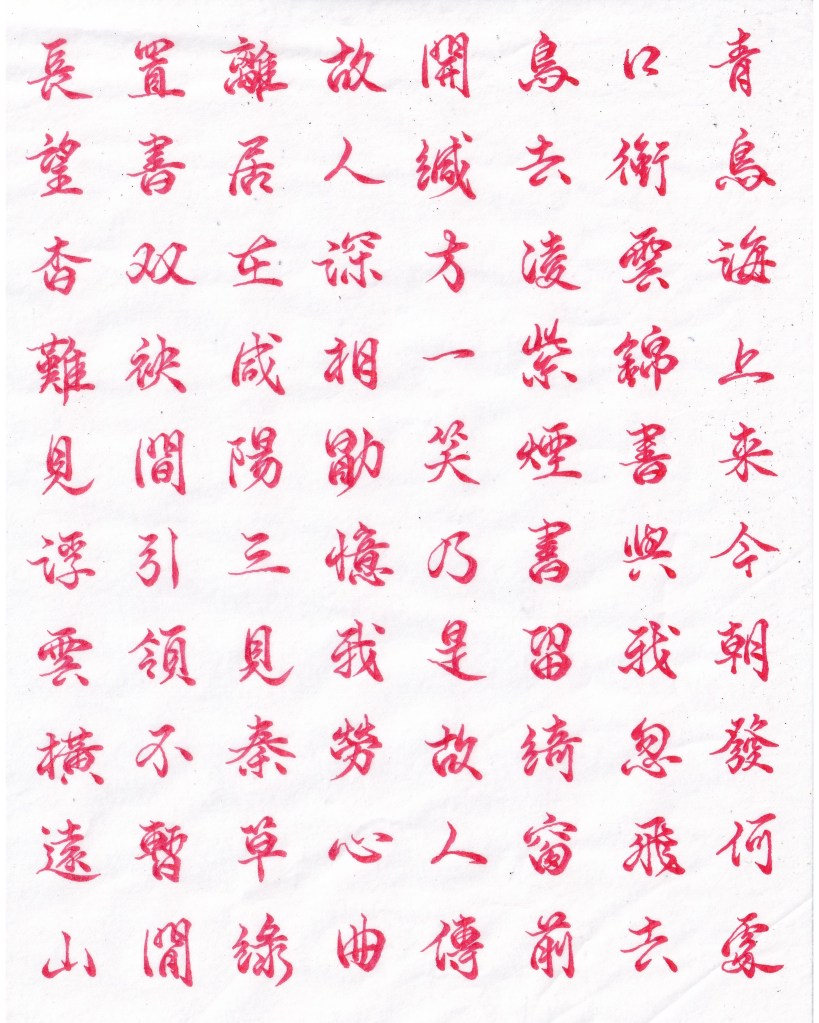 青鳥海上来今朝發何處
口銜雲錦書與我忽飛去
鳥去凌紫煙書留綺窗前
開緘方一笑乃是故人傳
故人深相勖憶我勞心曲
離居在咸陽三見秦草綠
置書双袂間引領不暫閒
長望杳難見浮雲橫遠山